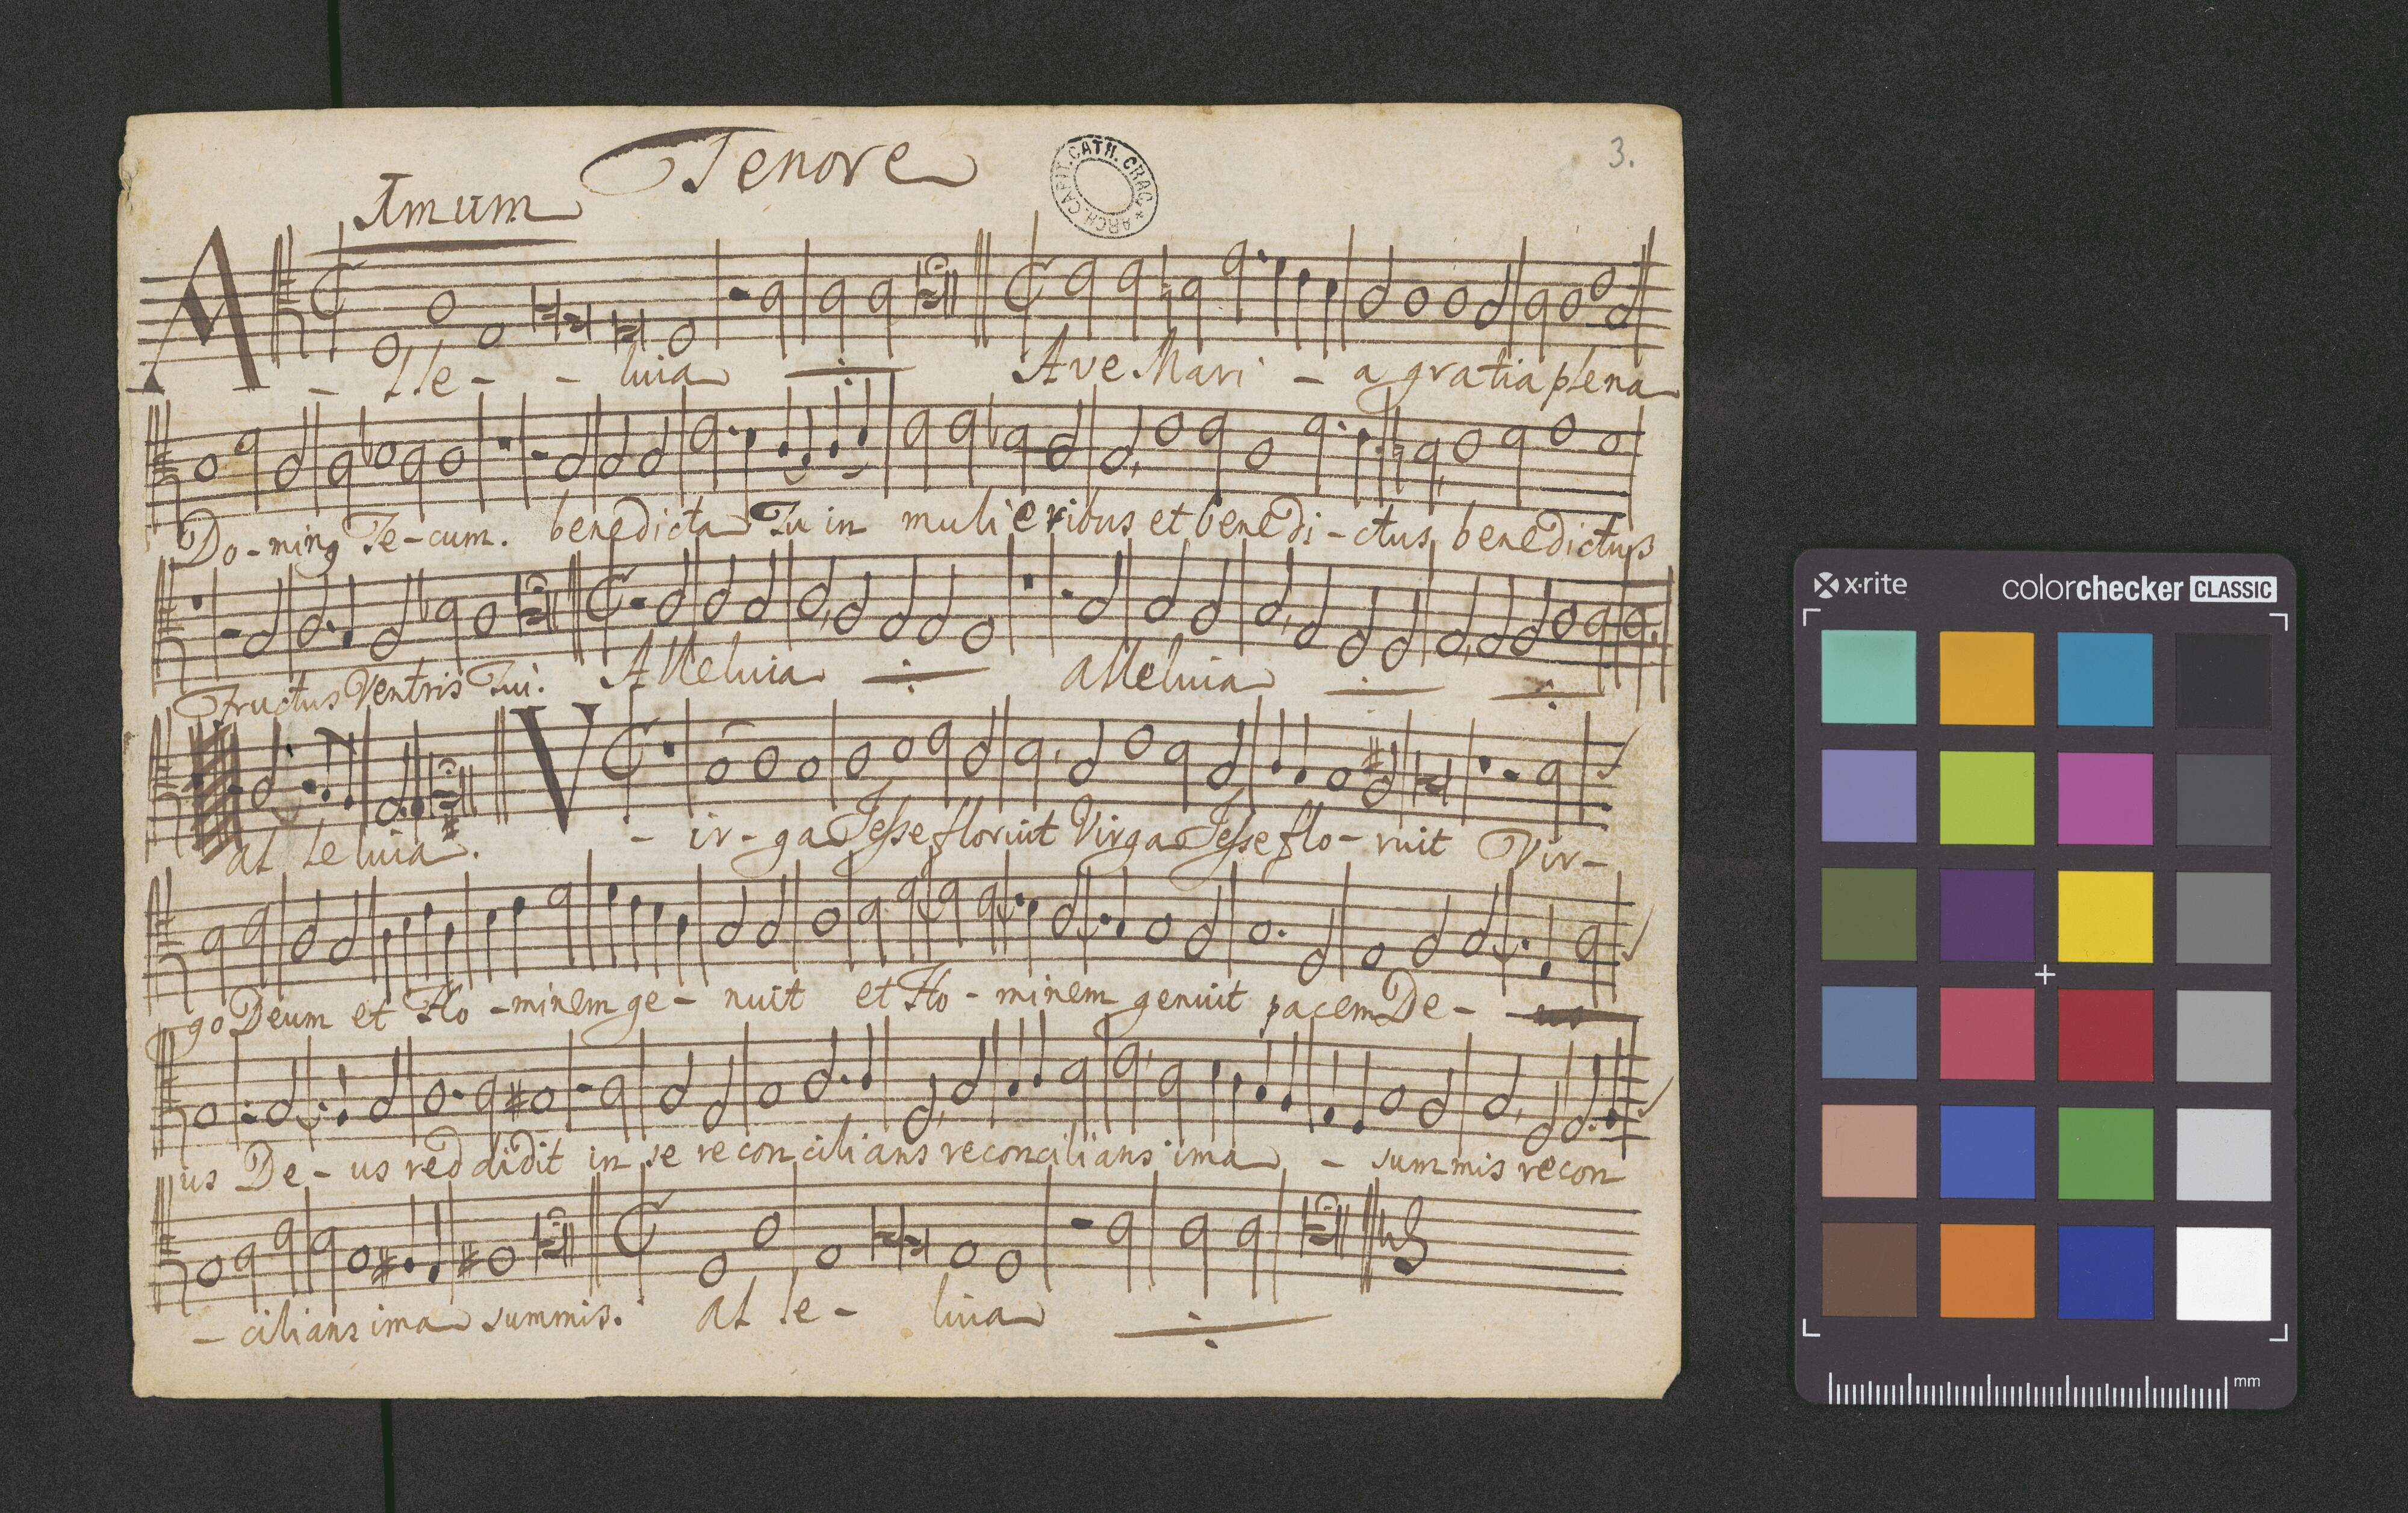 Tenore
3.
ARCH. CAPIT. CATH. CRAC.
A - lle - - luia Ave Mari - a gratia plena
Do - ming Te - cum. benedicta Tu in mulieribus et benedi - ctus, benedictus
Fructus Ventris Tui. Alleluia alleluia
al leluia. V - ir - ga Jesse floruit Virga Jesse flo - ruit Vir -
go Deum et Ho - minem ge - nuit et Ho - minem genuit pacem De - us
us De - us reddidit in se reconcilians reconcilians ima - summis recon
- cilians ima summis. al le - luia
x·rite colorchecker CLASSIC
mm